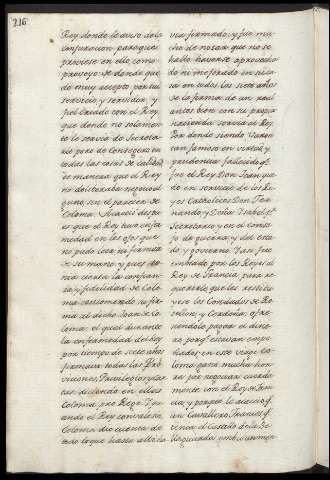 216
Rey donde le aviso de la
conjuracion para que
proviese en ello, como
proveyo: de donde que
dó muy acepto por tal
servicio y servidor, y
fiel criado con el Rey,
que donde no solamen
te le servia de Secreta
rio pero de Consegero en
todas las cosas de calidad
de manera que el Rey
no deliberava negocio al
guno sin el parecer de
Coloma. Acaeció des
es que el Rey tuvo enfer
medad en los ojos que
no pudo leer ni firmar
de su mano, y pues te
nia cierta la confian
za y fidelidad de Colo
ma
al dicho Juan de Colo
loma: el qual durante
la enfermedad del Rey
por tiempo de siete años
firmava todas las Pro
visiones, Privilegios y
diciendo en ellas
Coloma pro Rege. Quan
do el Rey convaleció,
Coloma dio cuenta de
todo lo que hasta alli ha
via firmado, y fue mu
cho de notar que no se
halló haverse aprovecha
do ni mejorado en
sa en todos los siete años
de la firma de un
antes bien con su propia
hacienda servia al Rey.
Por donde siendo Varon
tan famoso en virtud y
prudencia, fallecido q.e
fue el Rey Don Juan, que
dó en servicio de los Re
yes Catholicos Don Fer
nando, y Doña Isabel p.r
Secretario y en el consejo
de guerra, y del esta
do, y govierno. Y assi fue
embiado por los Reyes al
Rey de Francia, para re
querirle que les restitu
yese los Condados de Ro
sellon, y Cerdaña, ofre
ciendole pagar el dine
ro, porq.e estavan empe
ñados: en este viage Co
loma ganó mucha honr
ra por negociar cuerda
mente con el Rey de Fran
cia, y porque le
un Cavallero Francés q.e
tenia el Estado de la Se